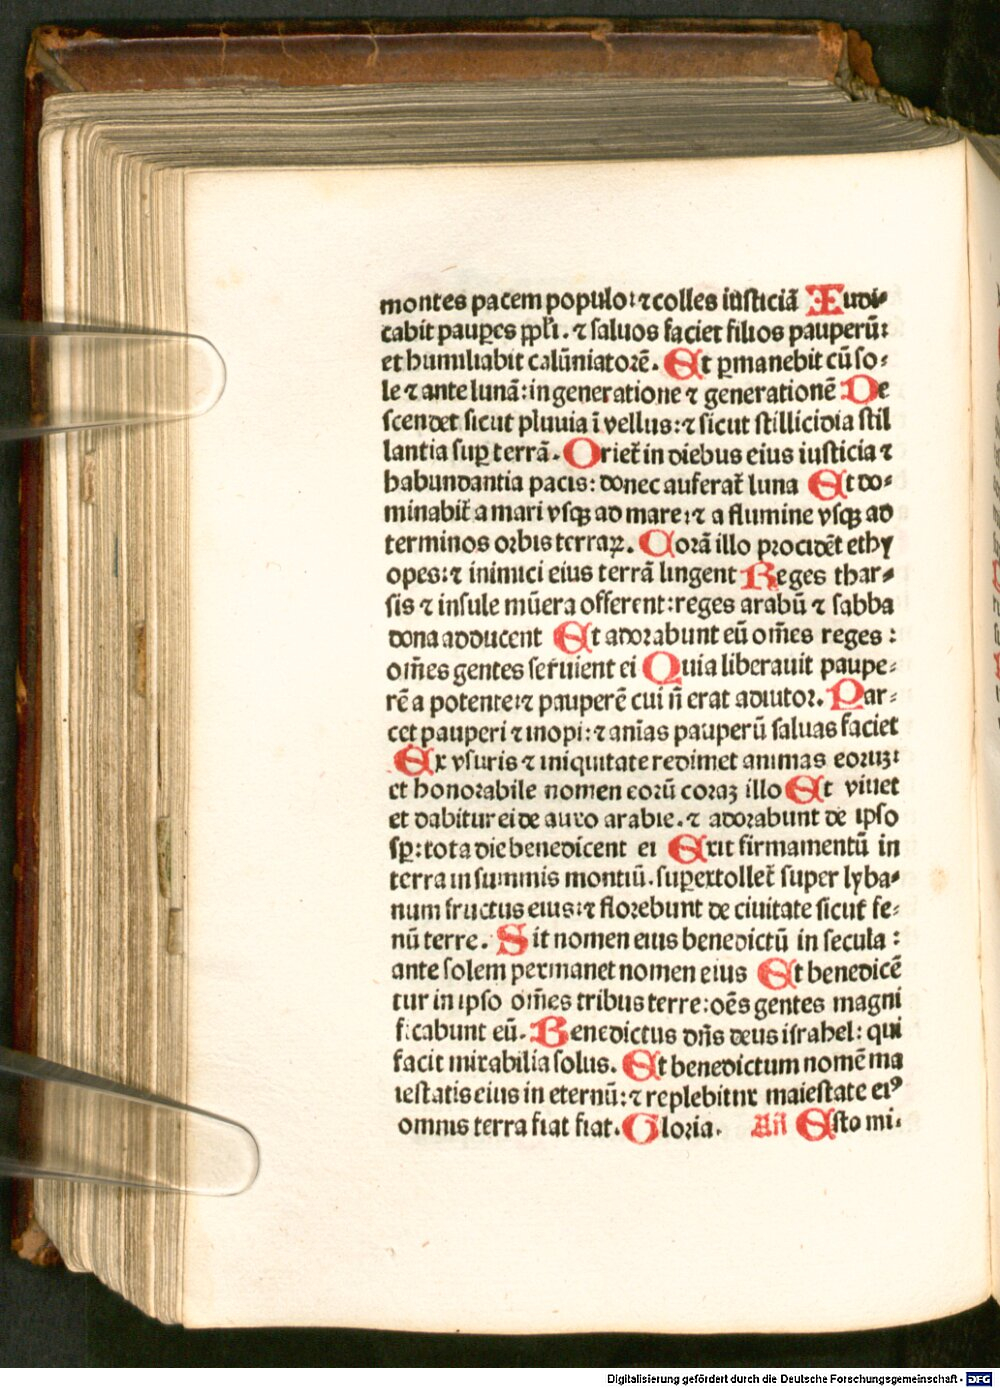 montes pacem populo: ⁊ colles iusticiā Iudi-
cabit pauꝑes ppl'i . ⁊ saluos faciet filios pauperū:
et humiliabit calūniatorē . Et ꝑmanebit cū so-
le ⁊ ante lunā: in generatione ⁊ generationē De
scendet sicut pluuia ī vellus: ⁊ sicut stillicidia stil
lantia suꝑ terrā . Oriet᷑ in diebus eius iusticia ⁊
habundantia pacis: donec auferat᷑ luna Et do-
minabit᷑ a mari vsqꝫ ad mare: ⁊ a flumine vsqꝫ ad
terminos orbis terraꝝ. Corā illo procidēt ethy
opes: ⁊ inimici eius terrā lingent Reges thar-
sis ⁊ insule mūera offerent: reges arabū ⁊ sabba
dona adducent Et adorabunt eū om̄es reges :
om̄es gentes seruient ei Quia liberauit paupe-
rē a potente: ⁊ pauperē cui n̄ erat adiutor. Par-
cet pauperi ⁊ inopi: ⁊ anīas pauperū saluas faciet
Ex vsuris ⁊ iniquitate redimet animas eoruꝫ:
et honorabile nomen eorū coraꝫ illo Et viuet
et dabitur ei de auro arabie. ⁊ adorabunt de ipso
sꝑ: tota die benedicent ei Erit firmamentū in
terra in summis montiū. suꝑextollet᷑ super lyba-
num fructus eius: ⁊ florebunt de ciuitate sicut fe-
nū terre . Sit nomen eius benedictū in secula :
ante solem permanet nomen eius Et benedicē
tur in ipso om̄es tribus terre: oēs gentes magni
ficabunt eū. Benedictus dn̄s deus israhel: qui
facit mirabilia solus. Et benedictum nomē ma
iestatis eius in eternū: ⁊ replebitur maiestate eiꝰ
omnis terra fiat fiat. Gloria. Añ Esto mi-
Digitalisierung gefördert durch die Deutsche Forschungsgemeinschaft - DFG